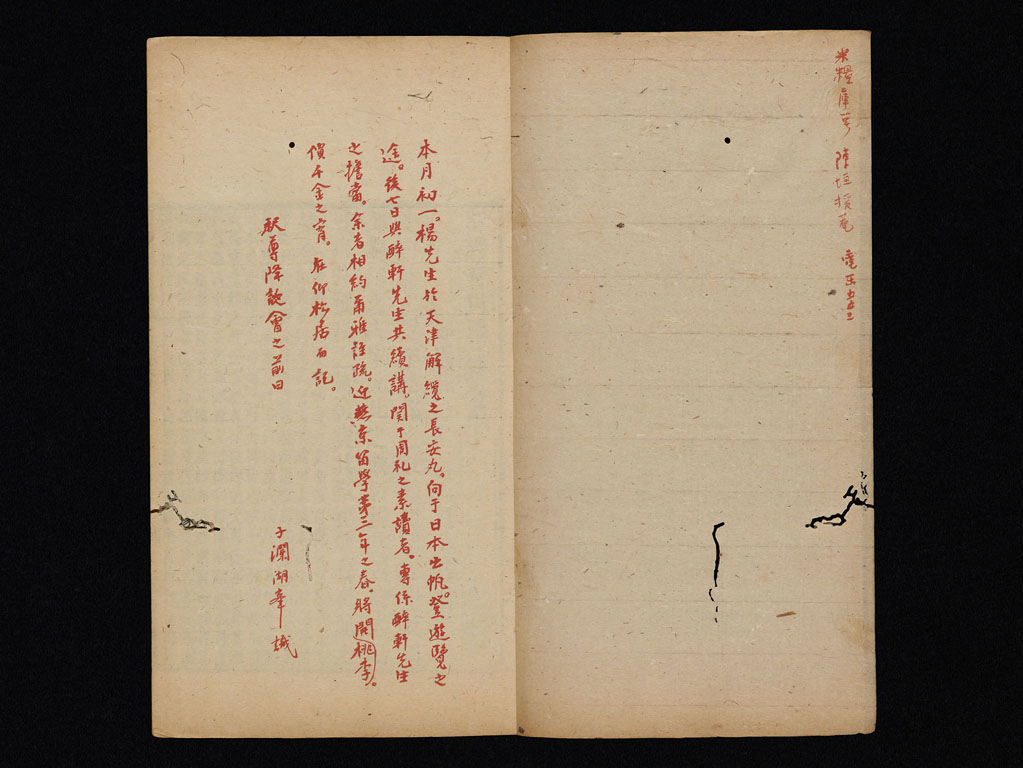 米糧庫 陳垣 菴 電
本月初一。楊先生於天津解纜之長安丸。向于日本出帆。登遊覽之
途。後七日與醉軒先生共續講。関于周礼之素讀者。専係醉軒先生
之擔當。余者相約爾雅註疏。近燕京留學第三年之春。將開桃李。
價千金之宵。在仰松居而記。
釈尊降誕會之前日
子瀾湖 識